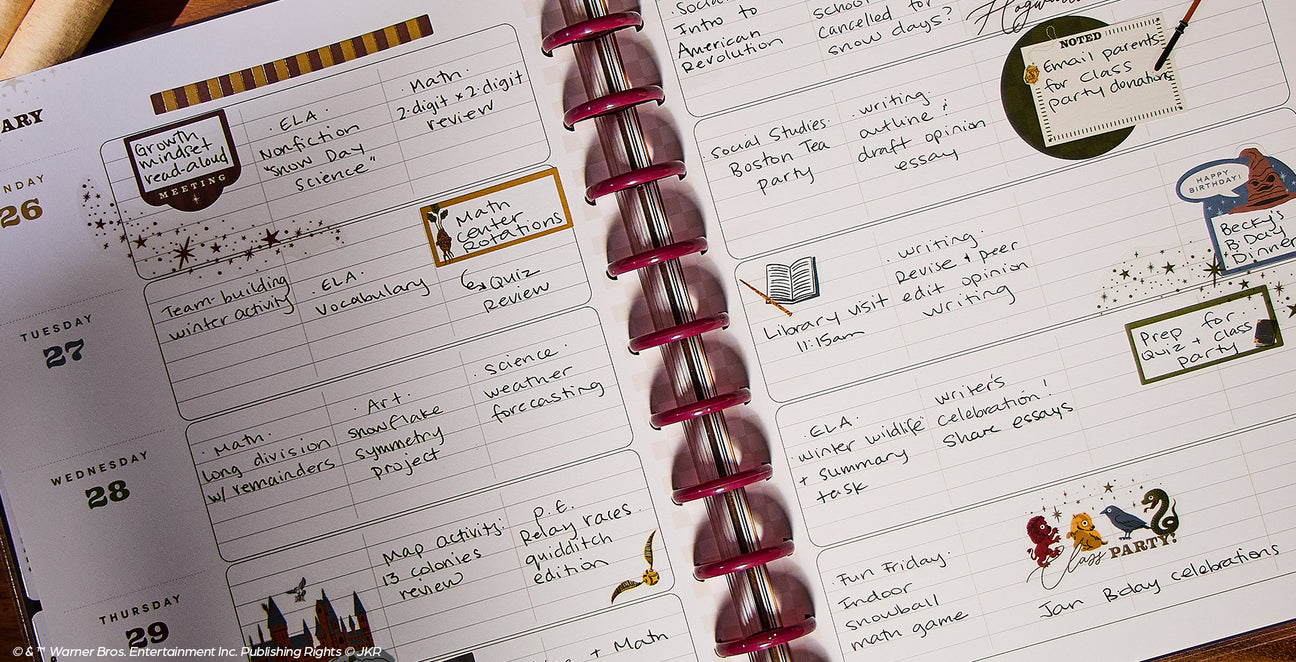 ARY
NDAY
26
Growth
mindset
read-aloud
MEETING
· ELA ·
Nonfiction
"Snow Day
science"
· Math ·
2-digit x 2-digit
review
TUESDAY
27
Team building
winter activity
· ELA ·
Vocabulary
Math
center
Rotations
Quiz
Review
WEDNESDAY
28
· Math ·
long division
w/ remainders
· Art ·
snowflake
symmetry
project
· science ·
weather
forecasting
THURSDAY
29
Map activity:
13 colonies
review
P.E.
Relay races
quidditch
edition
+ Math
· Social
Intro to
American
Revolution
school
cancelled for
snow days?
NOTED
Email parents
for class
party donations
· Social Studies ·
Boston Tea
Party
· writing ·
outline +
draft opinion
essay
HAPPY
BIRTHDAY!
Becky's
B Day
Dinner
Library visit
11:15am
· writing ·
Revise + peer
edit opinion
writing
Prep for
Quiz + class
party
· ELA ·
winter wildlife
+ summary
task
writer's
celebration!
share essays
· Fun Friday ·
Indoor
snowball
math game
Class PARTY!
Jan Bday celebrations
© & ™ Warner Bros. Entertainment Inc. Publishing Rights © JKR